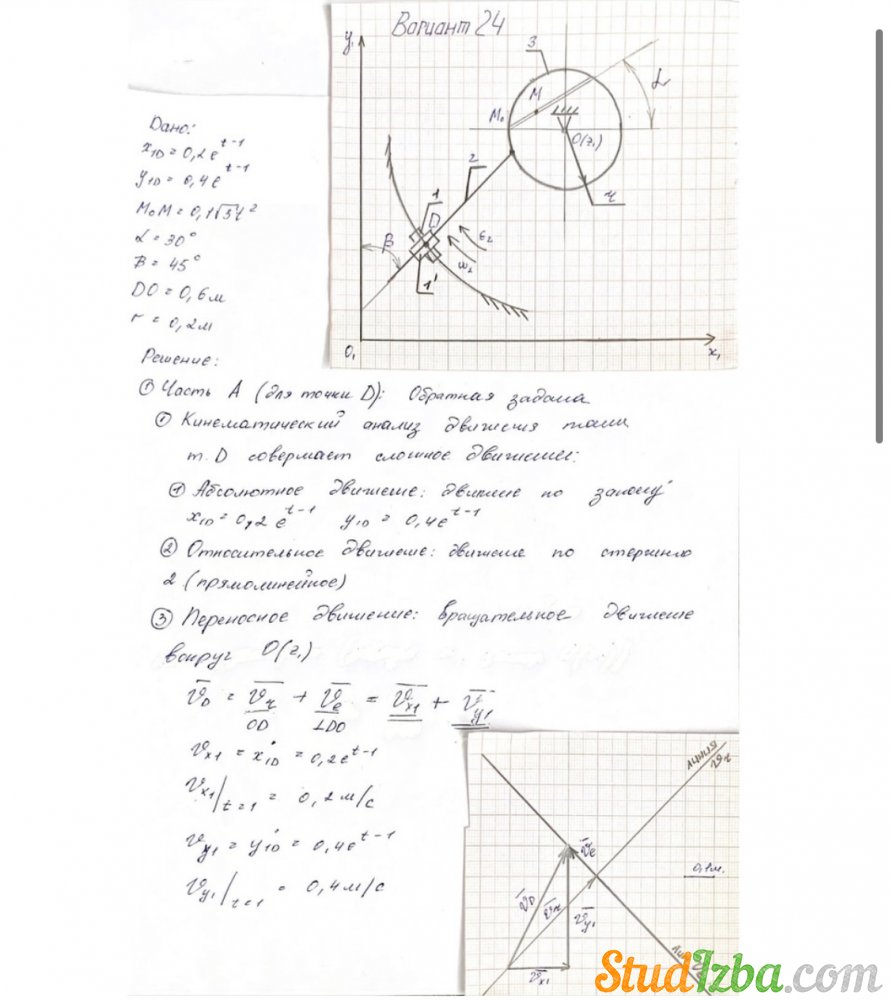 Вариант 24
y₁
3
M
M₀
O(z₁)
α
2
4
1
D
β
ε₂
ω₂
1'
O₁
x₁
Дано:
x₁D = 0,2e^(t-1)
y₁D = 0,4e^(t-1)
M₀M = 0,1√3t²
α = 30°
β = 45°
DO = 0,6м
r = 0,2м
Решение:
① Часть А (для точки D): Обратная задача
① Кинематический анализ движения точки
т. D совершает сложное движение:
① Абсолютное движение: движение по закону
x₁D = 0,2e^(t-1) y₁D = 0,4e^(t-1)
② Относительное движение: движение по стержню
2 (прямолинейное)
③ Переносное движение: вращательное движение
вокруг O(z₁)
v̄D = v̄r + v̄e = v̄x1 + v̄y1
OD ⊥DO
vx1 = ẋ₁D = 0,2e^(t-1)
vx1|t=1 = 0,2м/с
vy1 = ẏ₁D = 0,4e^(t-1)
vy1|t=1 = 0,4м/с
линия
v̄r
v̄e
0,1м.
v̄D
v̄r
v̄y1
v̄x1
StudIzba.com